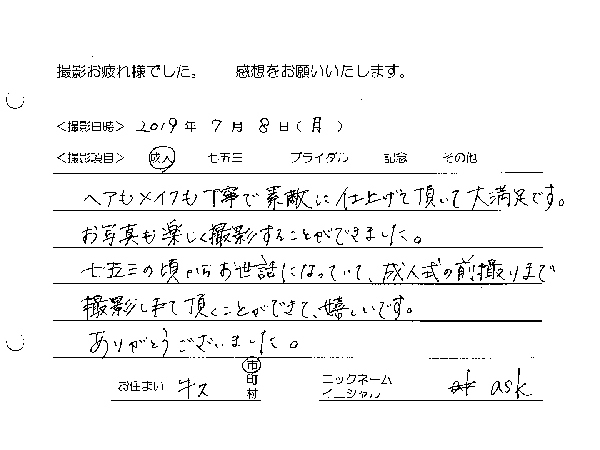 撮影お疲れ様でした。 感想をお願いいたします。
<撮影日時> 2019 年 7 月 8 日 ( 月 )
<撮影項目> 成人 七五三 ブライダル 記念 その他
ヘアもメイクも丁寧で素敵に仕上げて頂いて大満足です。
お写真も楽しく撮影することができました。
七五三の頃からお世話になっていて、成人式の前撮りまで
撮影して頂くことができて、嬉しいです。
ありがとうございました。
お住まい 牛久 市 町 村
ニックネーム イニシャル ask